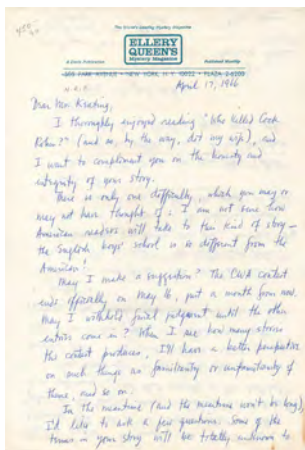 The World's Leading Mystery Magazine
ELLERY
QUEEN'S
Mystery Magazine
A Davis Publication
Published Monthly
505 PARK AVENUE • NEW YORK, N.Y. 10022 • PLAZA 2-6200
April 17, 1966
Dear Mr. Keating,
I thoroughly enjoyed reading "Who Killed Cock
Robin?" (and so, by the way, did my wife), and
I want to compliment you on the honesty and
integrity of your story.
There is only one difficulty, which you may or
may not have thought of: I am not sure how
American readers will take to this kind of story —
the English boys' school is so different from the
American!
May I make a suggestion? The CWA contest
ends officially on May 16, just a month from now.
May I withhold final judgment until the other
entries come in? When I see how many stories
the contest produces, I'll have a better perspective
on such things as familiarity or unfamiliarity of
theme, and so on.
In the meantime (and the meantime won't be long),
I'd like to ask a few questions. Some of the
terms in your story will be totally unknown to